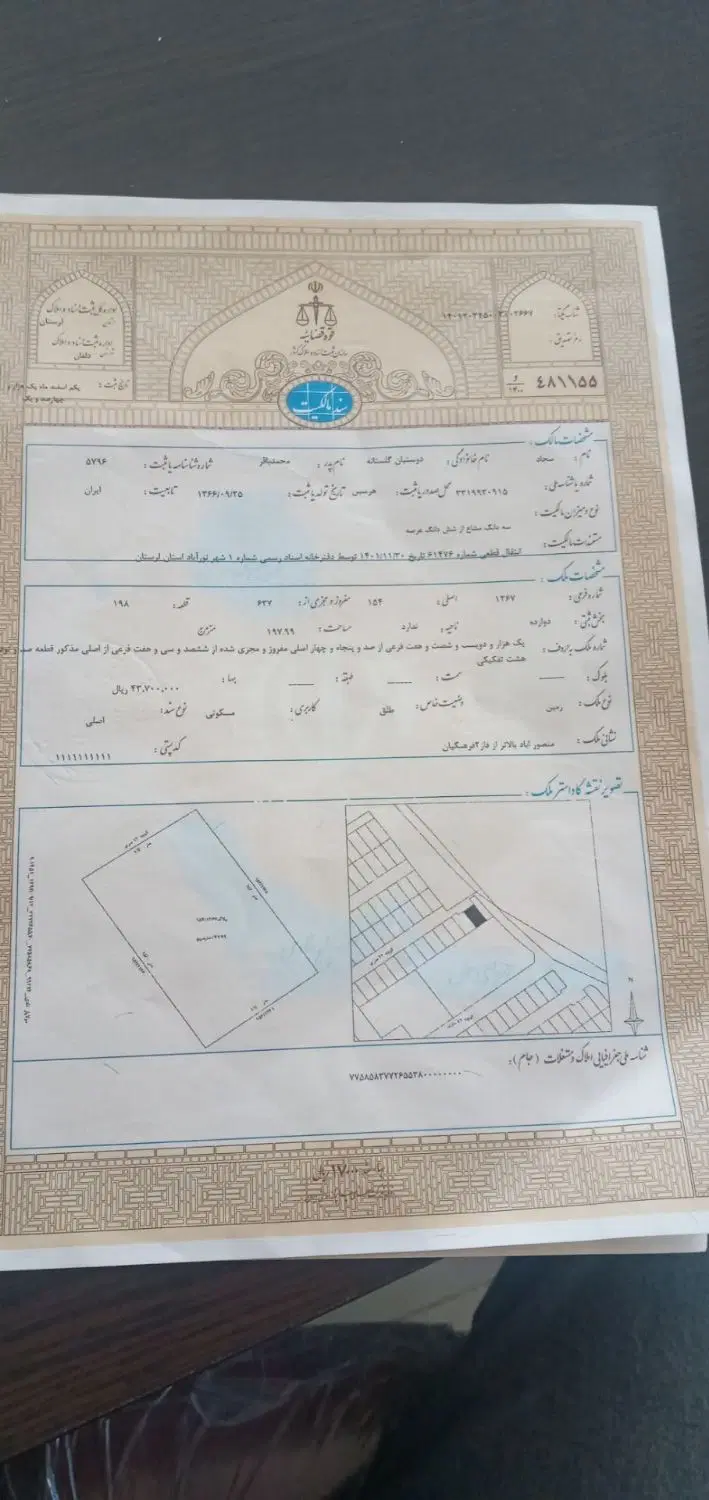 قوه قضائیه
سازمان ثبت اسناد و املاک کشور
سند مالکیت
اداره کل ثبت اسناد و املاک
استان لرستان
اداره ثبت اسناد و املاک
دلفان
تاریخ ثبت : یکم اسفند ماه یک هزار و
چهارصد و یک
شناسه یکتا :
دفتر تصدیق :
۴۸۱۱۵۵
مشخصات مالک :
نام : سجاد نام خانوادگی : دوستیان گلستانه نام پدر : محمدباقر شماره شناسنامه یا ثبت : ۵۷۹۶
شماره یا شناسه ملی : ۳۳۱۹۹۳۰۹۱۵ محل صدور یا ثبت : هرسین تاریخ تولد یا ثبت : ۱۳۶۶/۰۹/۲۵ تابعیت : ایران
نوع و میزان مالکیت : سه دانگ مشاع از شش دانگ عرصه
مستندات مالکیت : انتقال قطعی شماره ۶۱۴۷۶ تاریخ ۱۴۰۱/۱۱/۳۰ توسط دفترخانه اسناد رسمی شماره ۱ شهر نورآباد استان لرستان
مشخصات ملک :
شماره فرعی : ۱۲۶۷ اصلی : ۱۵۴ مفروز و مجزی از : ۶۳۷ قطعه : ۱۹۸
بخش ثبتی : دوازده ناحیه : ندارد مساحت : ۱۹۷.۹۹ مترمربع
شماره ملک به حروف : یک هزار و دویست و شصت و هفت فرعی از صد و پنجاه و چهار اصلی مفروز و مجزی شده از ششصد و سی و هفت فرعی از اصلی مذکور قطعه صد و نود
هشت تفکیکی
بلوک : ____ سمت : ____ طبقه : ____ بها : ۴۳,۷۰۰,۰۰۰ ریال
نوع ملک : زمین وضعیت خاص : طلق کاربری : مسکونی نوع سند : اصلی
نشانی ملک : منصور آباد بالاتر از فاز۲فرهنگیان کد پستی : ۱۱۱۱۱۱۱۱۱۱
تصویر نقشه کاداستر ملک :
N
شناسه ملی جغرافیایی املاک و مستغلات (جام) :